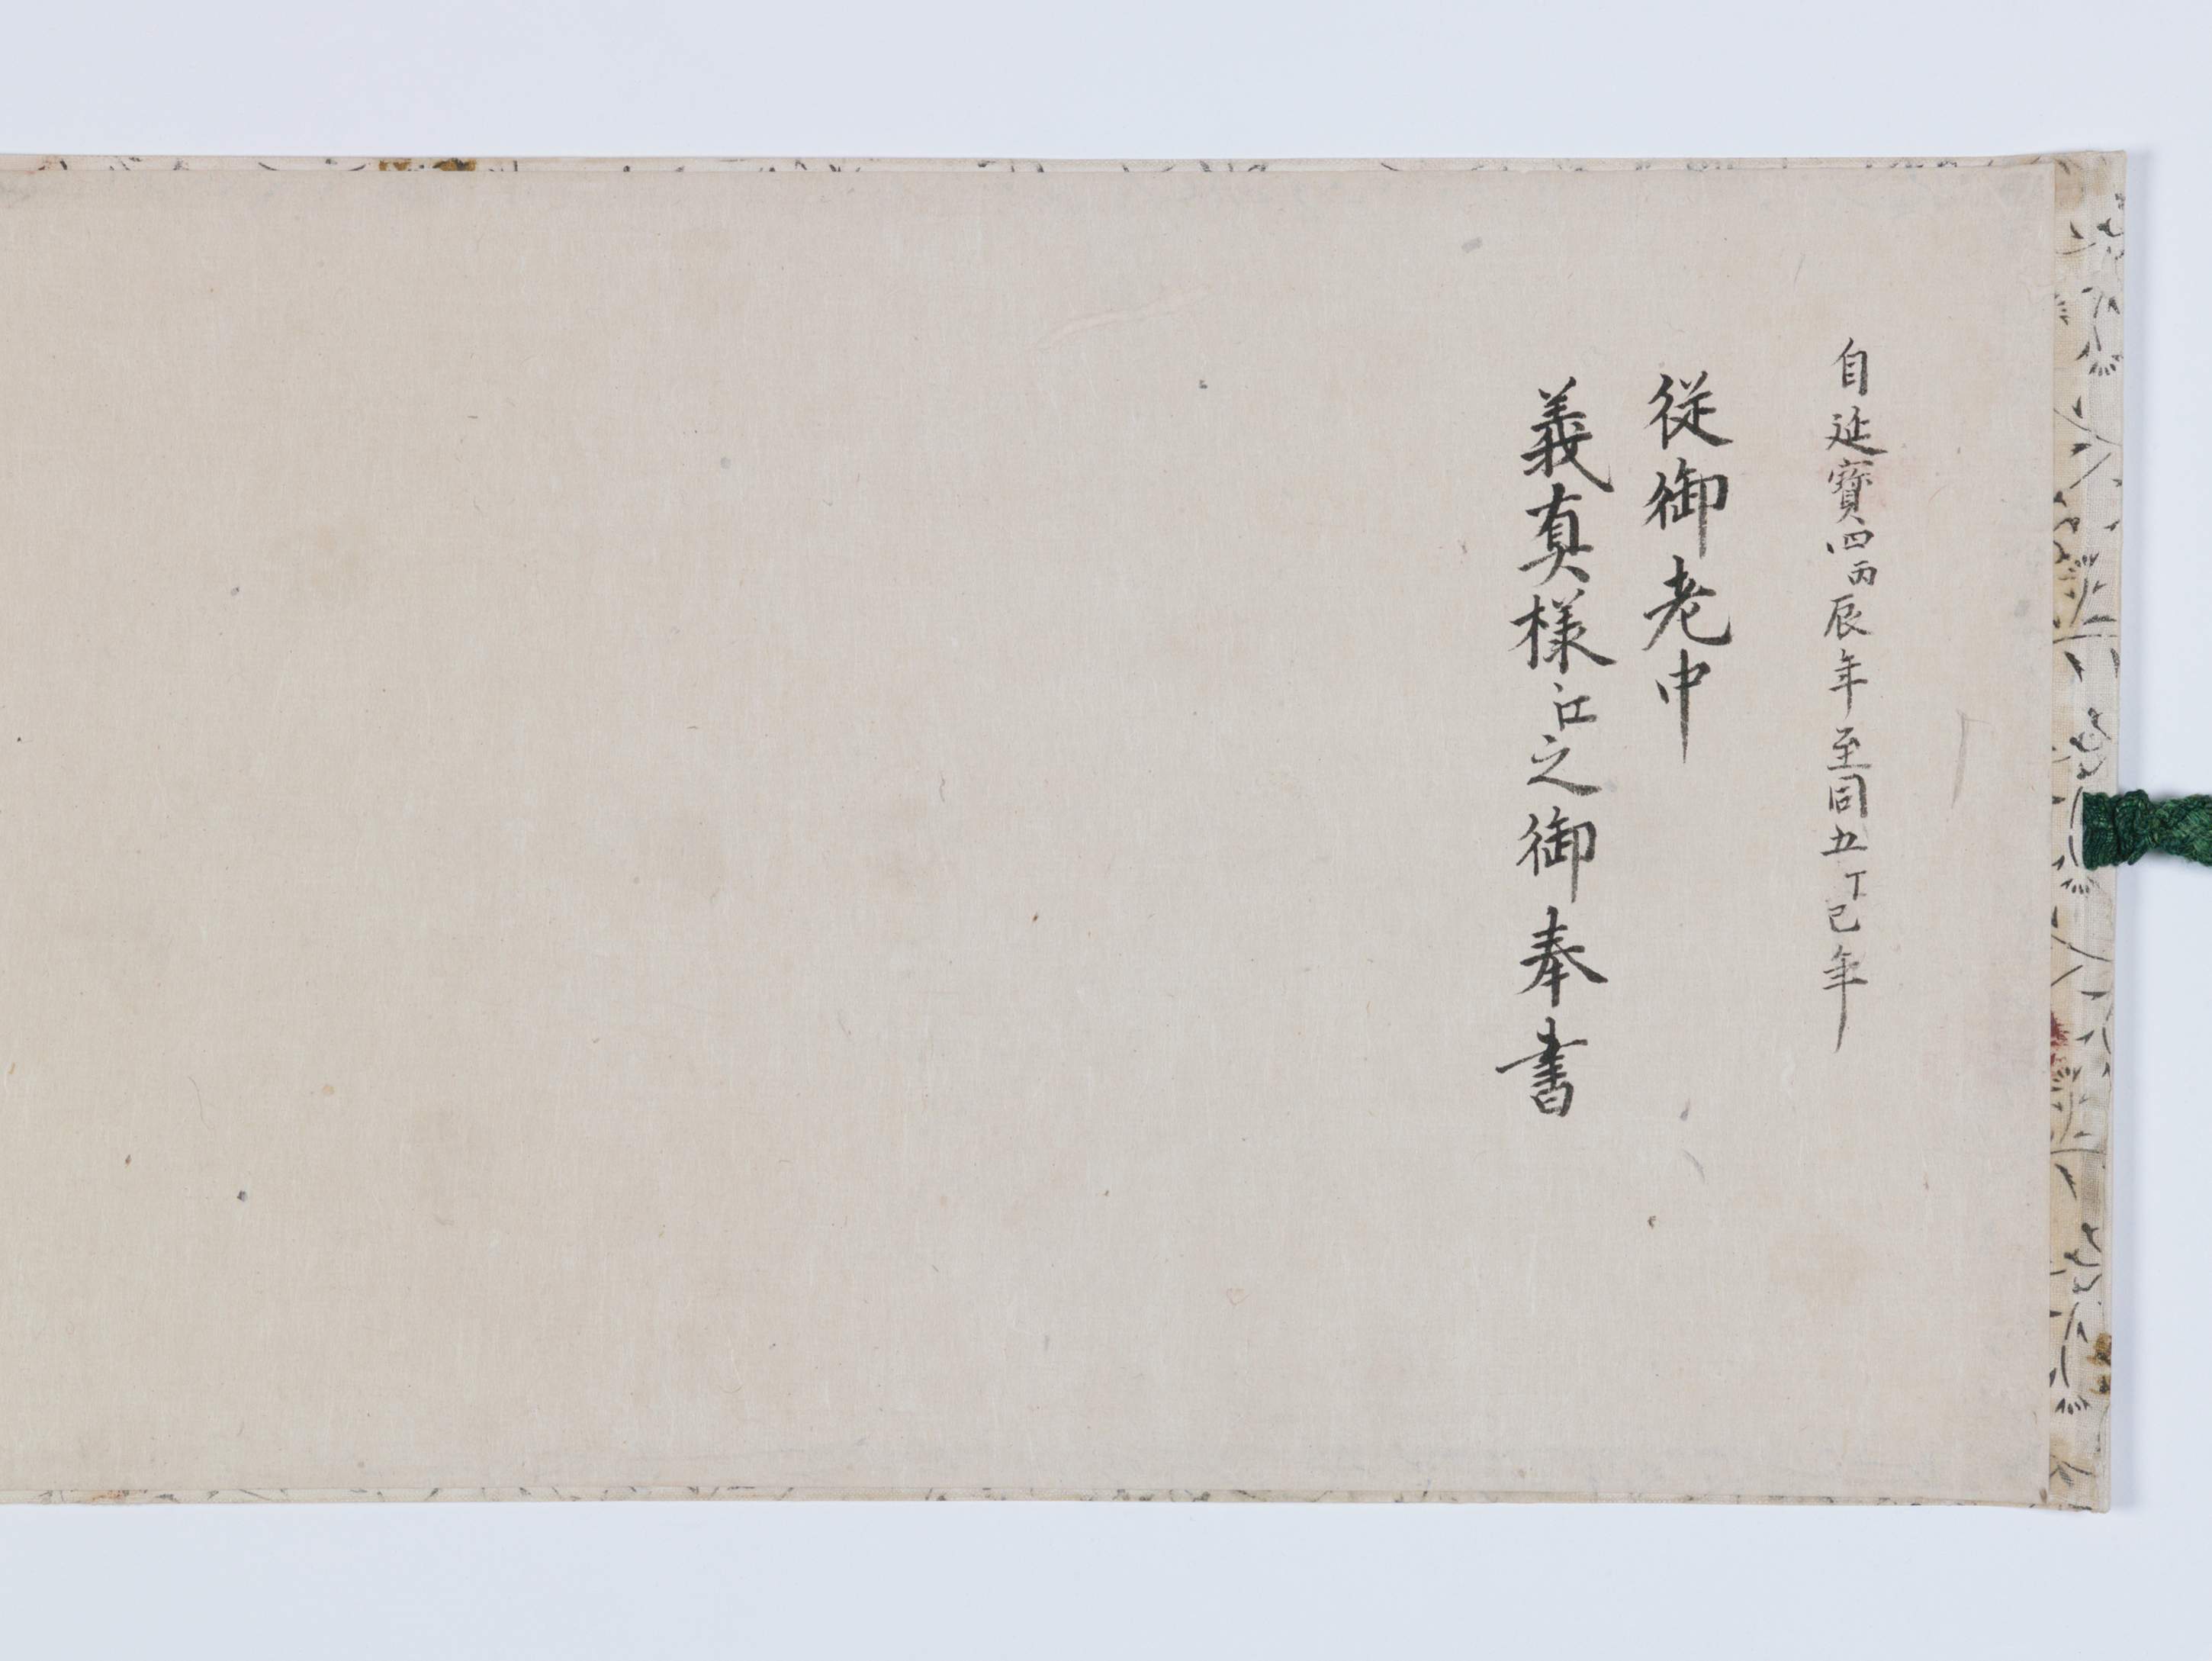 自延寶四丙辰年至同五丁巳年
従御老中
義真様江之御奉書